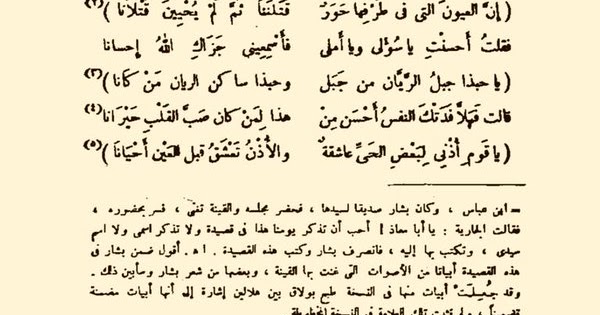 (إنَّ العيونَ التى فى طَرْفِها حَوَرٌ قَتَلْنَنَا ثمَّ لَمْ يُحْيِينَ قَتْلاَنا )(٢)
فقلتُ أحسنْتِ ياسُؤْلى وياأملى فأسْمِعينى جَزَاكِ اللهُ إحسانا
( يا حبذا جبلُ الرَّيَّان من جَبَل وحبذا ساكن الريان مَنْ كانا )(٣)
قالت فَهَلاَّ فَدَتْكَ النفسُ أَحْسَن مِنْ هذا لِمَنْ كان صَبَّ القَلْبِ حَيْرَانا(٤)
( يا قَومِ أُذْنِى لِبَعْضِ الحَىِّ عاشقةٌ والأُذْنُ تَعْشَقُ قبل العَيْن أَحْيَانا )(٥)
= ابن عباس ، وكان بشار صديقا لسيدها ، فحضر مجلسه والقينة تغنى ، فسر بحضوره ،
فقالت الجارية : يا أبا معاذ ! أحب أن تذكر يومنا هذا فى قصيدة ولا تذكر اسمى ولا اسم
سيدى ، وتكتب بها إليه ، فانصرف بشار وكتب هذه القصيدة . اهـ . أقول ضمن بشار فى
هذه القصيدة أبياتا من الأصوات التى غنت بها القينة ، وبعضها من شعر بشار وسأبين ذلك .
وقد جُعِلَت أبيات منها فى النسخة طبع بولاق بين هلالين إشارة إلى أنها أبيات مضمنة